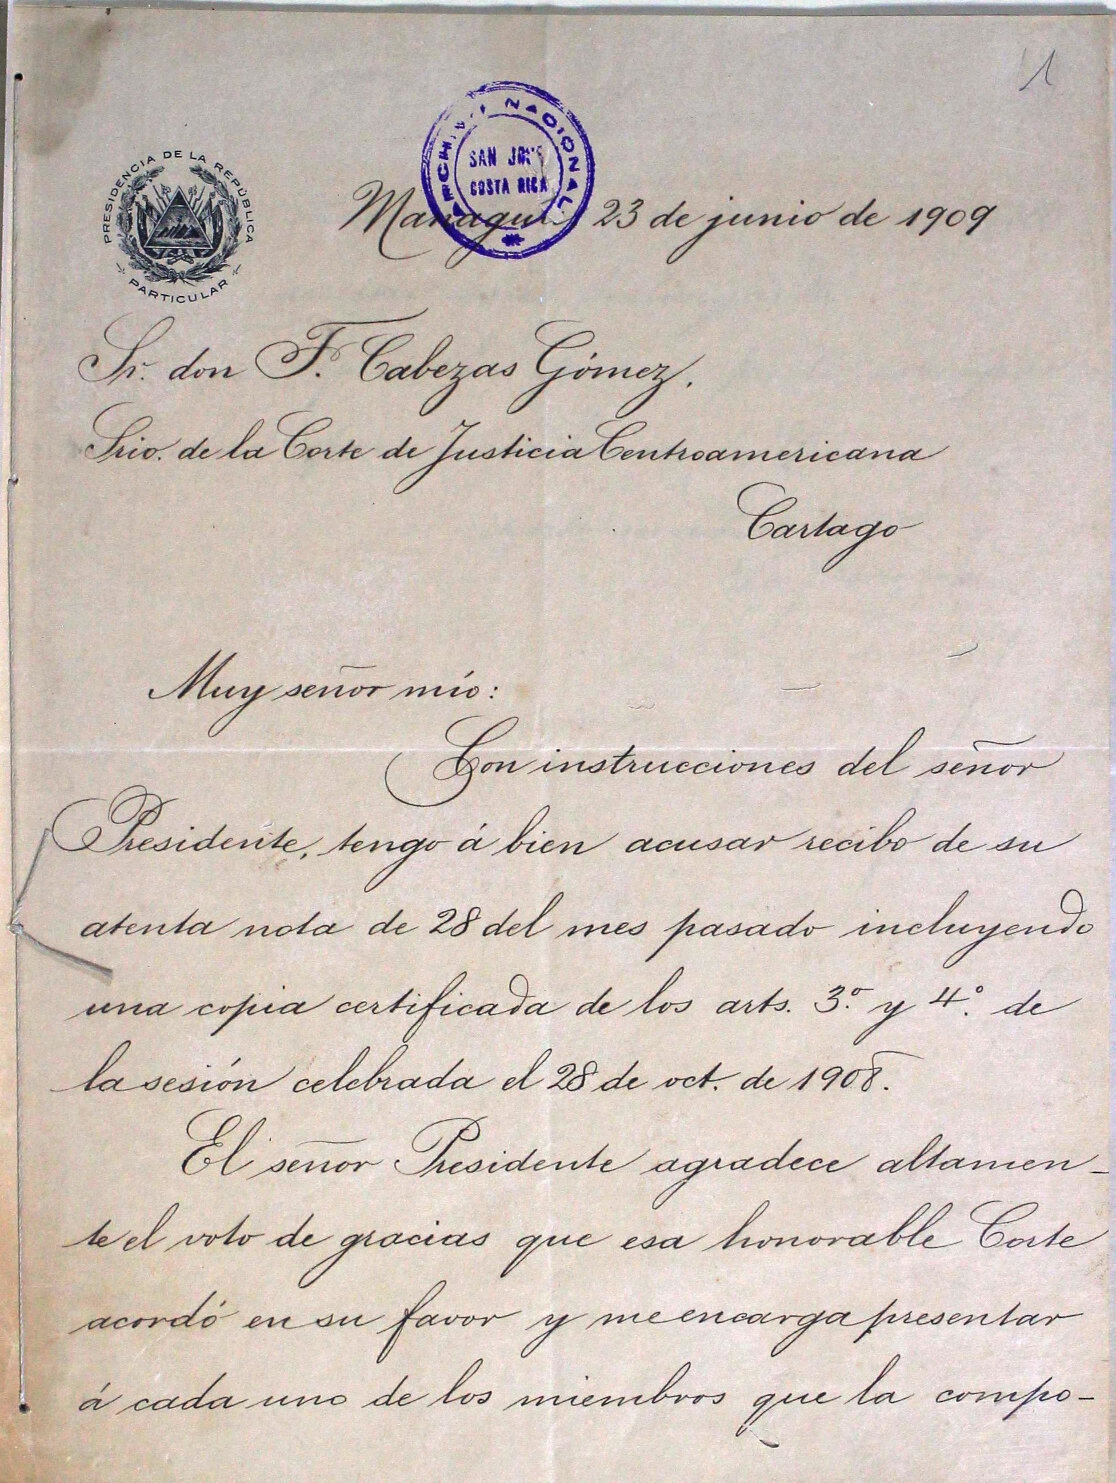 1
PRESIDENCIA DE LA REPÚBLICA
PARTICULAR
ARCHIVO NACIONAL
SAN JOSE
COSTA RICA
Managua, 23 de junio de 1909
Sr. don F. Cabezas Gómez.
Srio. de la Corte de Justicia Centroamericana
Cartago
Muy señor mío:
Con instrucciones del señor
Presidente, tengo á bien acusar recibo de su
atenta nota de 28 del mes pasado incluyendo
una copia certificada de los arts. 3.º y 4.º de
la sesión celebrada el 28 de oct. de 1908.
El señor Presidente agradece altamen-
te el voto de gracias que esa honorable Corte
acordó en su favor y me encarga presentar
á cada uno de los miembros que la compo-